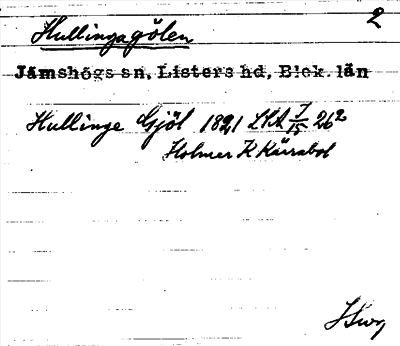 2
Hullingagölen
Jämshögs sn, Listers hd, Blek. län
Hullinge Gjöl 1821 LSA 7/15 26²
Holmer K Kärrabol